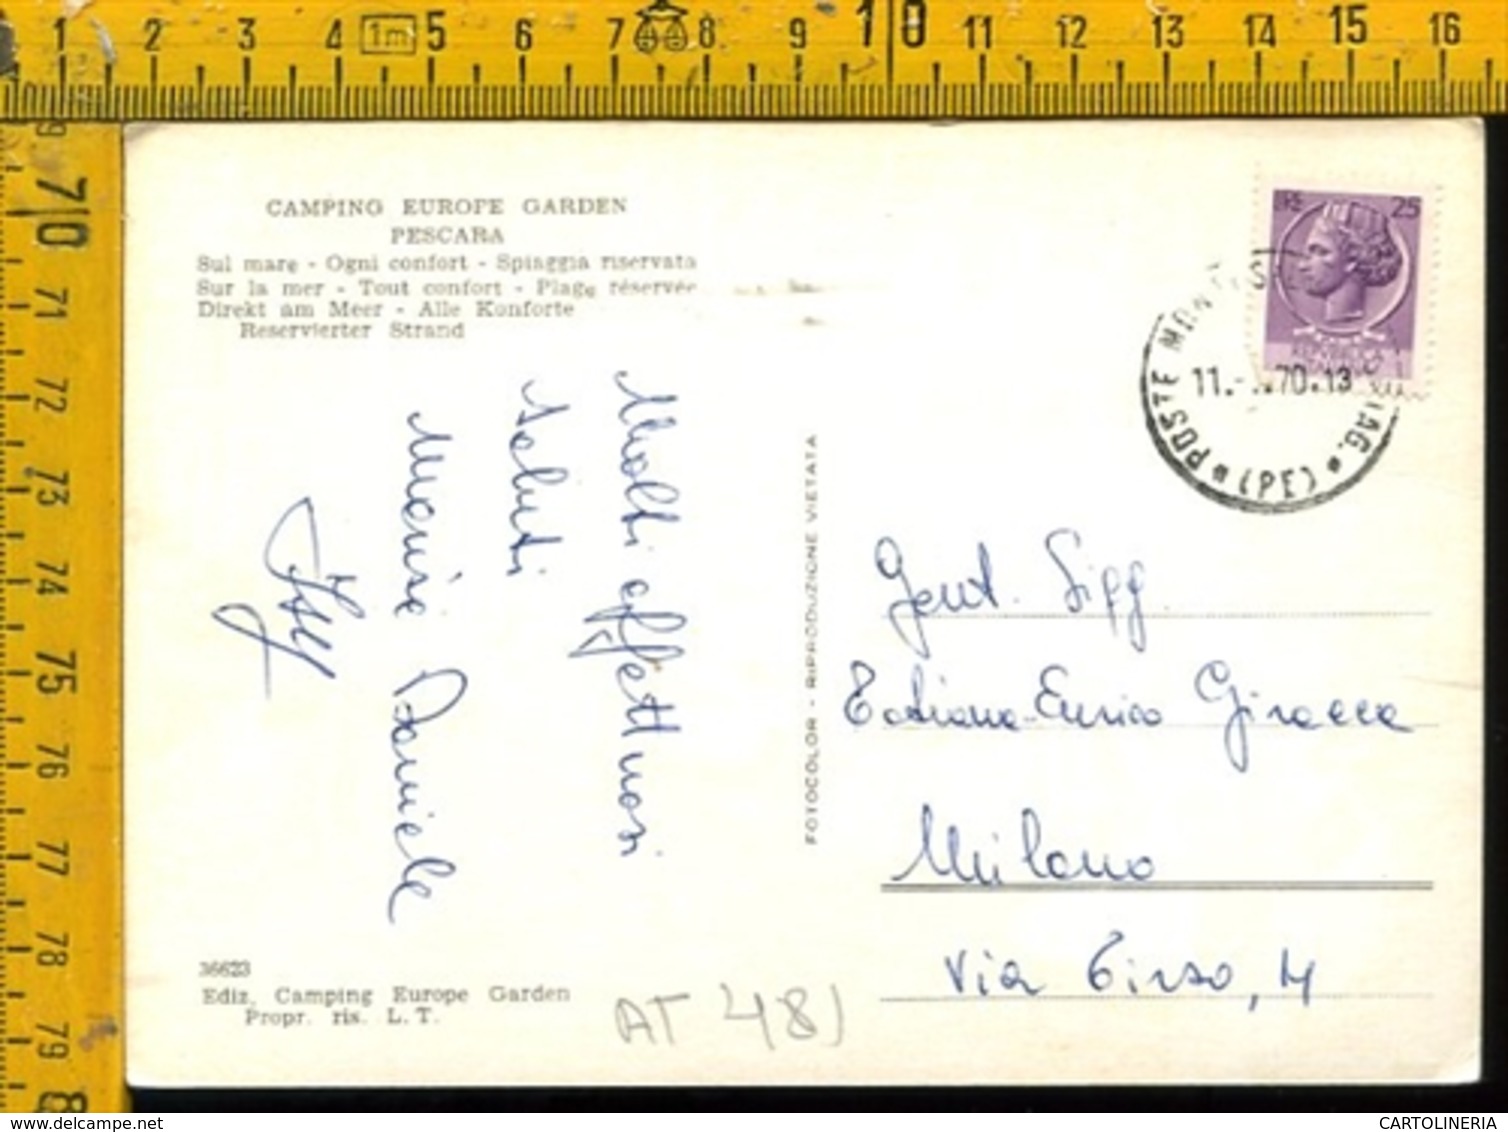 1 2 3 4 1m 5 6 7 8 9 10 11 12 13 14 15 16
70
71
72
73
74
75
76
77
78
79
8
CAMPING EUROPE GARDEN
PESCARA
Sul mare - Ogni confort - Spiaggia riservata
Sur la mer - Tout confort - Plage réservée
Direkt am Meer - Alle Konforte
Reservierter Strand
Molti affettuosi
saluti
Daniele
36623
Ediz. Camping Europe Garden
Propr. ris. L. T.
AT 481
FOTOCOLOR - RIPRODUZIONE VIETATA
LIRE 25
POSTE
11.- .70.13
* (PE) *
Gent. Sigg
Tatiana-Enrico
Milano
Via Tirso, 14
CARTOLINERIA